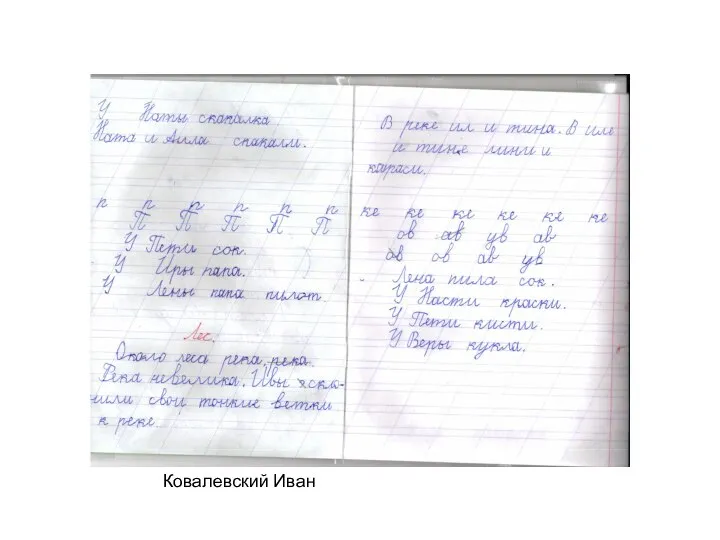 У Наты скакалка
Ната и Алла скакали.
п п п п п п
П П П П П
У Пети сок.
У Иры папа.
У Лены папа пилот.
Лес.
Около леса река, река.
Река невелика. Ивы скло-
нили свои тонкие ветки
к реке
В реке ил и тина. В иле
и тине лини и
караси.
ке ке ке ке ке ке
ов ав ув ав
ов ов ав ув
Лена пила сок.
У Насти краски.
У Пети кисти.
У Веры кукла.
Ковалевский Иван